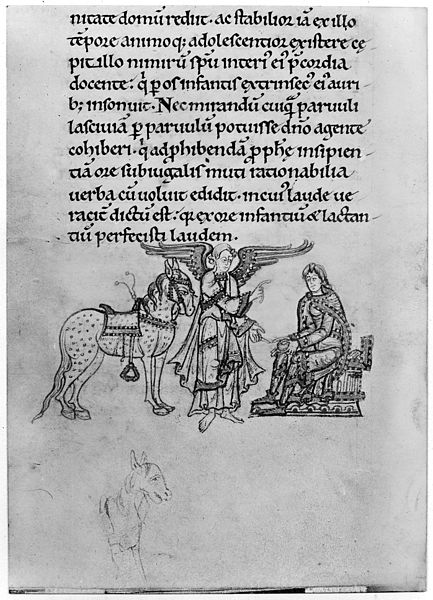 nitate domū rediit. ac stabilior iā ex illo
tēpore animoq; adolescentior existere cę
pit. illo nimirū spū interi᾽ ei᾽ p̄cordia
docente: q̇ ꝑ os infantis extrinsec᾽ ei᾽ auri
b; insonuit. Nec mirandū cuiq̄ paruuli
lasciuiā ꝑ paruulū potuisse dn̄o agente
cohiberi. q̇ ad phibendā pphę̄ insipien
tiā ore subiugalis muti rationabilia
uerba cū uoluit edidit. in cui᾽ laude ue
racit̄ dictū est: q̇ ex ore infantiū & lactan
tiū perfecisti laudem.